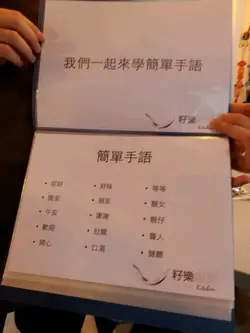 我們一起來學簡單手語
籽樂
簡單手語
• 你好
• 午安
• 歡迎
• 開心
• 好味
• 朋友
• 謝謝
• 肚餓
• 口渴
• 等等
• 靚女
• 靚仔
• 聾人
• 健聽
籽樂
Kitchen